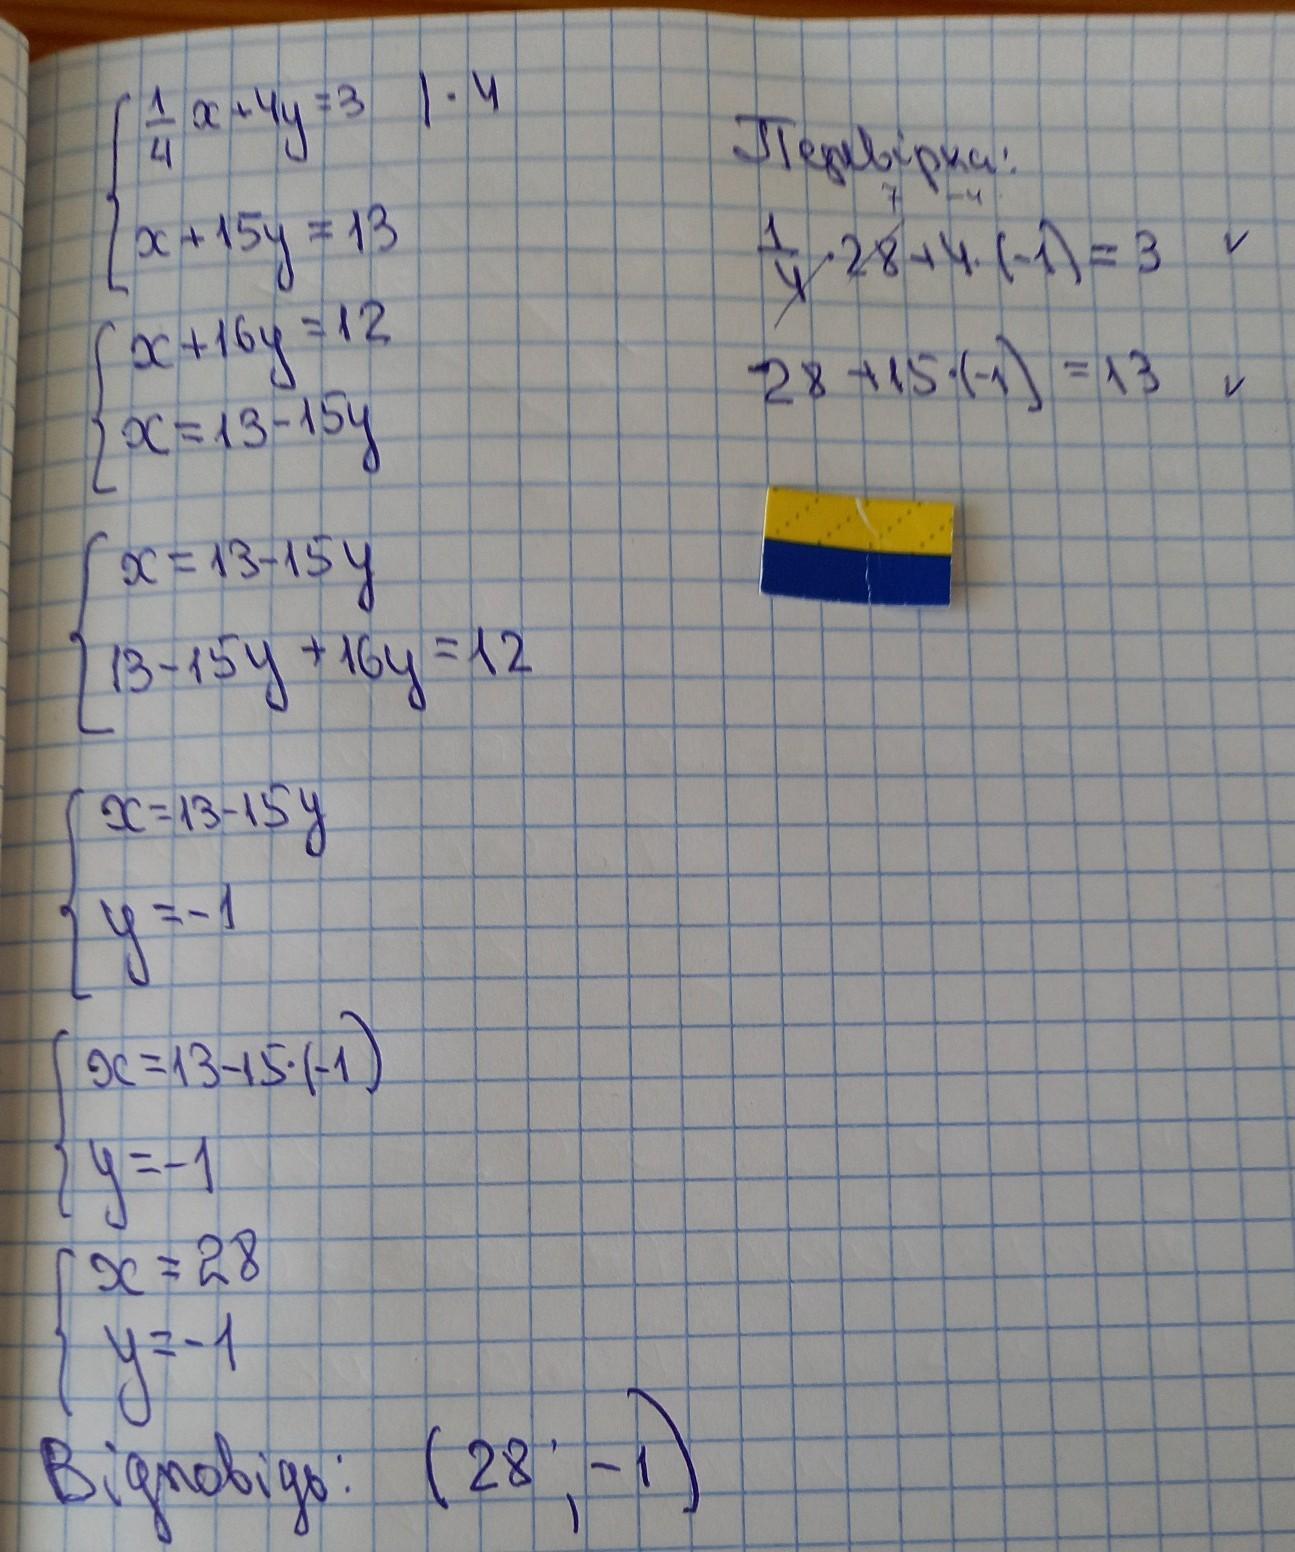 1/4 x + 4y = 3 | · 4
x + 15y = 13
x + 16y = 12
x = 13 - 15y
x = 13 - 15y
13 - 15y + 16y = 12
x = 13 - 15y
y = -1
x = 13 - 15 · (-1)
y = -1
x = 28
y = -1
Відповідь: (28 ; -1)
Перевірка:
7 -4
1/4 · 28 + 4 · (-1) = 3 ✓
28 + 15 · (-1) = 13 ✓